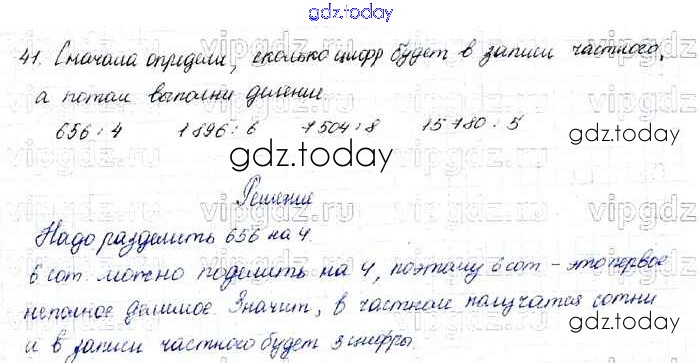 gdz.today
41. Сначала определи, сколько цифр будет в записи частного,
а потом выполни деление.
656 : 4 1896 : 6 7504 : 8 15780 : 5
gdz.today gdz.today
Решение
Надо разделить 656 на 4.
6 сот. можно поделить на 4, поэтому 6 сот - это первое
неполное делимое. Значит, в частном получатся сотни
и в записи частного будет 3 цифры.
gdz.today
vipgdz.ru